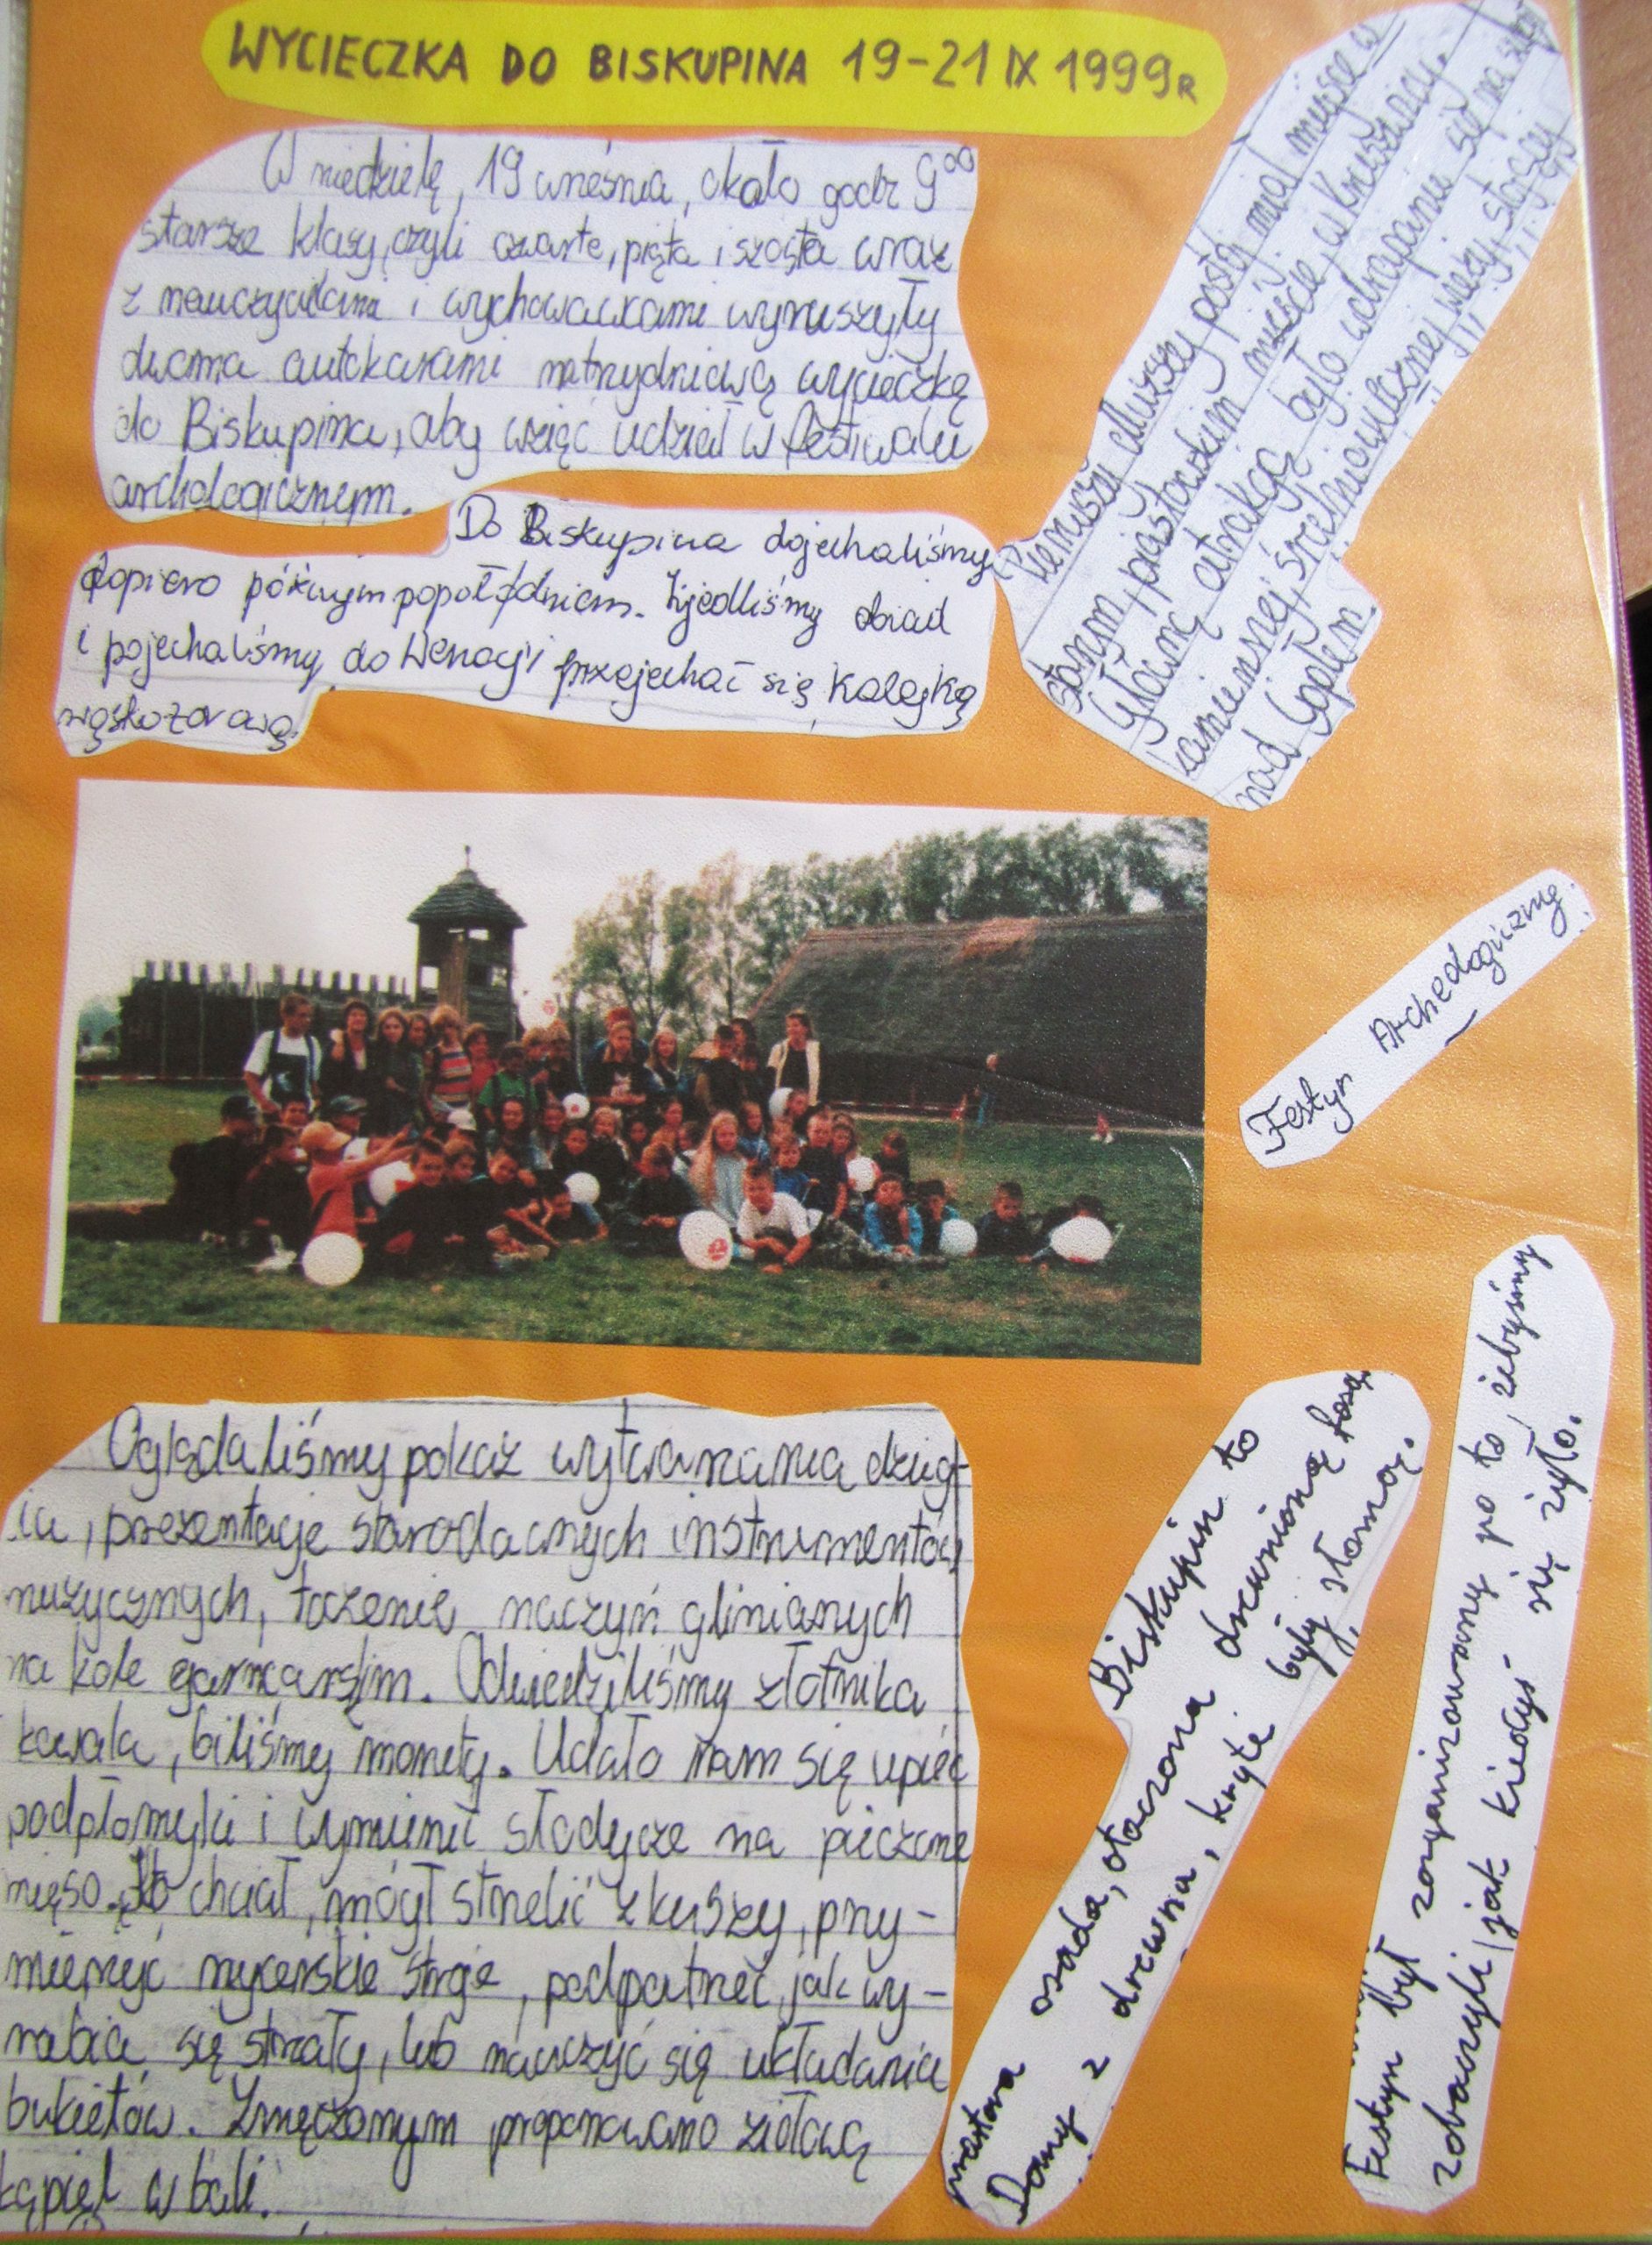 WYCIECZKA DO BISKUPINA 19-21 IX 1999R
W niedzielę, 19 września, około godz 9⁰⁰
starsze klasy, czyli czwarte, piąta i szósta wraz
z nauczycielami i wychowawcami wyruszyły
dwoma autokarami na trzydniową wycieczkę
do Biskupina, aby wziąć udział w festiwalu
archologicznym.
Do Biskupina dojechaliśmy
dopiero późnym popołudniem. Zjedliśmy obiad
i pojechaliśmy do Wenecji przejechać się kolejką
wąskotorową.
Pierwszy dłuższy postój miał miejsce w
starym, piastowskim mieście, w Kruszwicy.
Główną atrakcją było wdrapanie się na
kamiennej, średniowiecznej wieży, stojącej
nad Gopłem.
Festyn Archeologiczny.
Oglądaliśmy pokaz wytwarzania dzieg-
ciu, prezentację starodawnych instrumentów
muzycznych, toczenie naczyń glinianych
na kole garncarskim. Odwiedziliśmy złotnika
kowala, biliśmy monety. Udało nam się upiec
podpłomyki i wymienić słodycze na pieczone
mięso. Kto chciał, mógł strzelić z kuszy, przy-
mierzyć rycerskie stroje, podpatrzeć, jak wy-
rabia się strzały, lub nauczyć się układania
bukietów. Zmęczonym proponowano ziołową
kąpiel w bali.
Biskupin to
prastara osada, otoczona drewnianą fosą.
Domy z drewna, kryte były słomą.
Festyn był zorganizowany po to, żebyśmy
zobaczyli jak kiedyś się żyło.